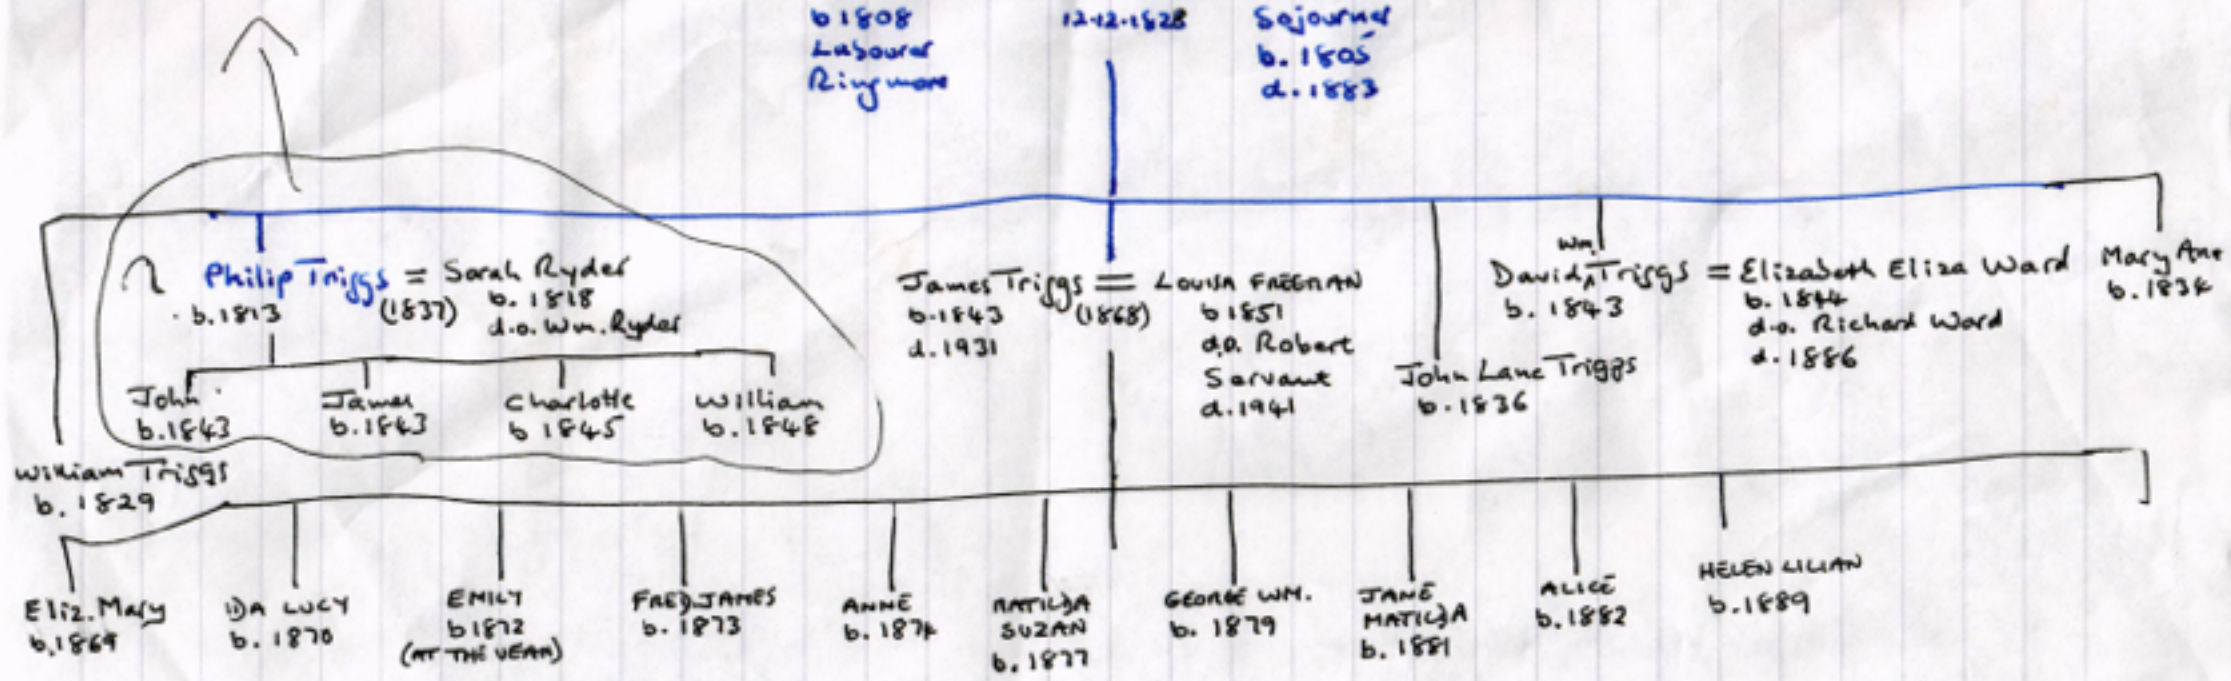 b 1808
Labourer
Ringmore
12.12.1828
Sojourner
b. 1805
d. 1883
?
Philip Triggs = Sarah Ryder
b. 1813
(1837)
b. 1818
d.o. Wm. Ryder
John
b. 1843
James
b. 1843
Charlotte
b 1845
William
b. 1848
James Triggs = Louisa FREEMAN
b. 1843
(1868)
b 1851
d. 1931
d.o. Robert
Servant
d. 1941
John Lane Triggs
b. 1836
Wm.
David Triggs = Elizabeth Eliza Ward
b. 1843
b. 1844
d.o. Richard Ward
d. 1886
Mary Ann
b. 1834
William Triggs
b. 1829
Eliz. Mary
b. 1869
IDA LUCY
b. 1870
EMILY
b 1872
(AT THE WEAR)
FRED. JAMES
b. 1873
ANNE
b. 1874
MATILDA
SUZAN
b. 1877
GEORGE WM.
b. 1879
JANE
MATILDA
b. 1881
ALICE
b. 1882
HELEN LILIAN
b. 1889